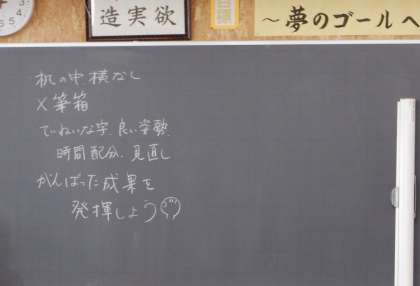 造実欲
目標
～夢のゴールへ
机の中横なし
×筆箱
ていねいな字 良い姿勢
時間配分、見直し
がんばった成果を
発揮しよう